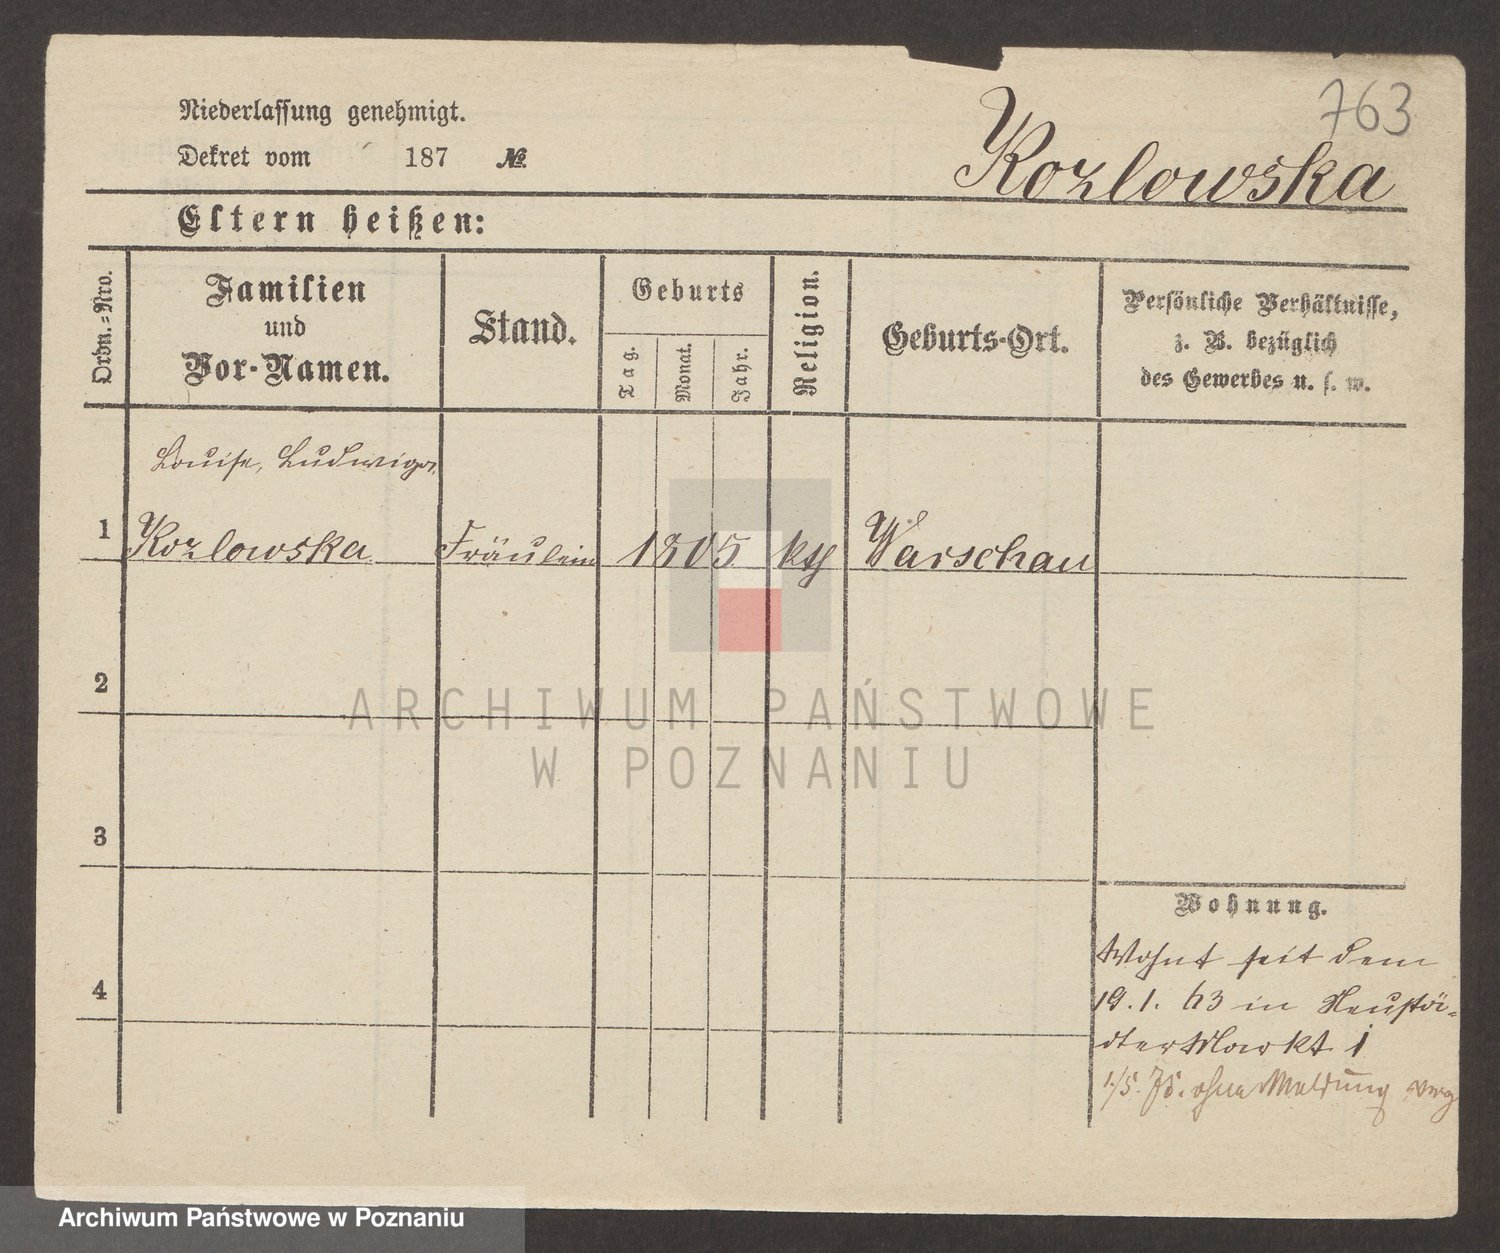 763
Niederlassung genehmigt.
Dekret vom 187 №
Kozlowska
Eltern heißen:
Ordn.-Nro.
Familien
und
Vor-Namen.
Stand.
Geburts
Tag.
Monat.
Jahr.
Religion.
Geburts-Ort.
Persönliche Verhältnisse,
z. B. bezüglich
des Gewerbes u. s. w.
Louise, Ludwiga
1 Kozlowska Fräulein 1805 kth Warschau
2
3
4
Wohnung.
Wohnt seit dem
19. 1. 63 in Neustä-
dter Markt 1
1/5. 75. ohne Meldung verz
ARCHIWUM PAŃSTWOWE
W POZNANIU
Archiwum Państwowe w Poznaniu